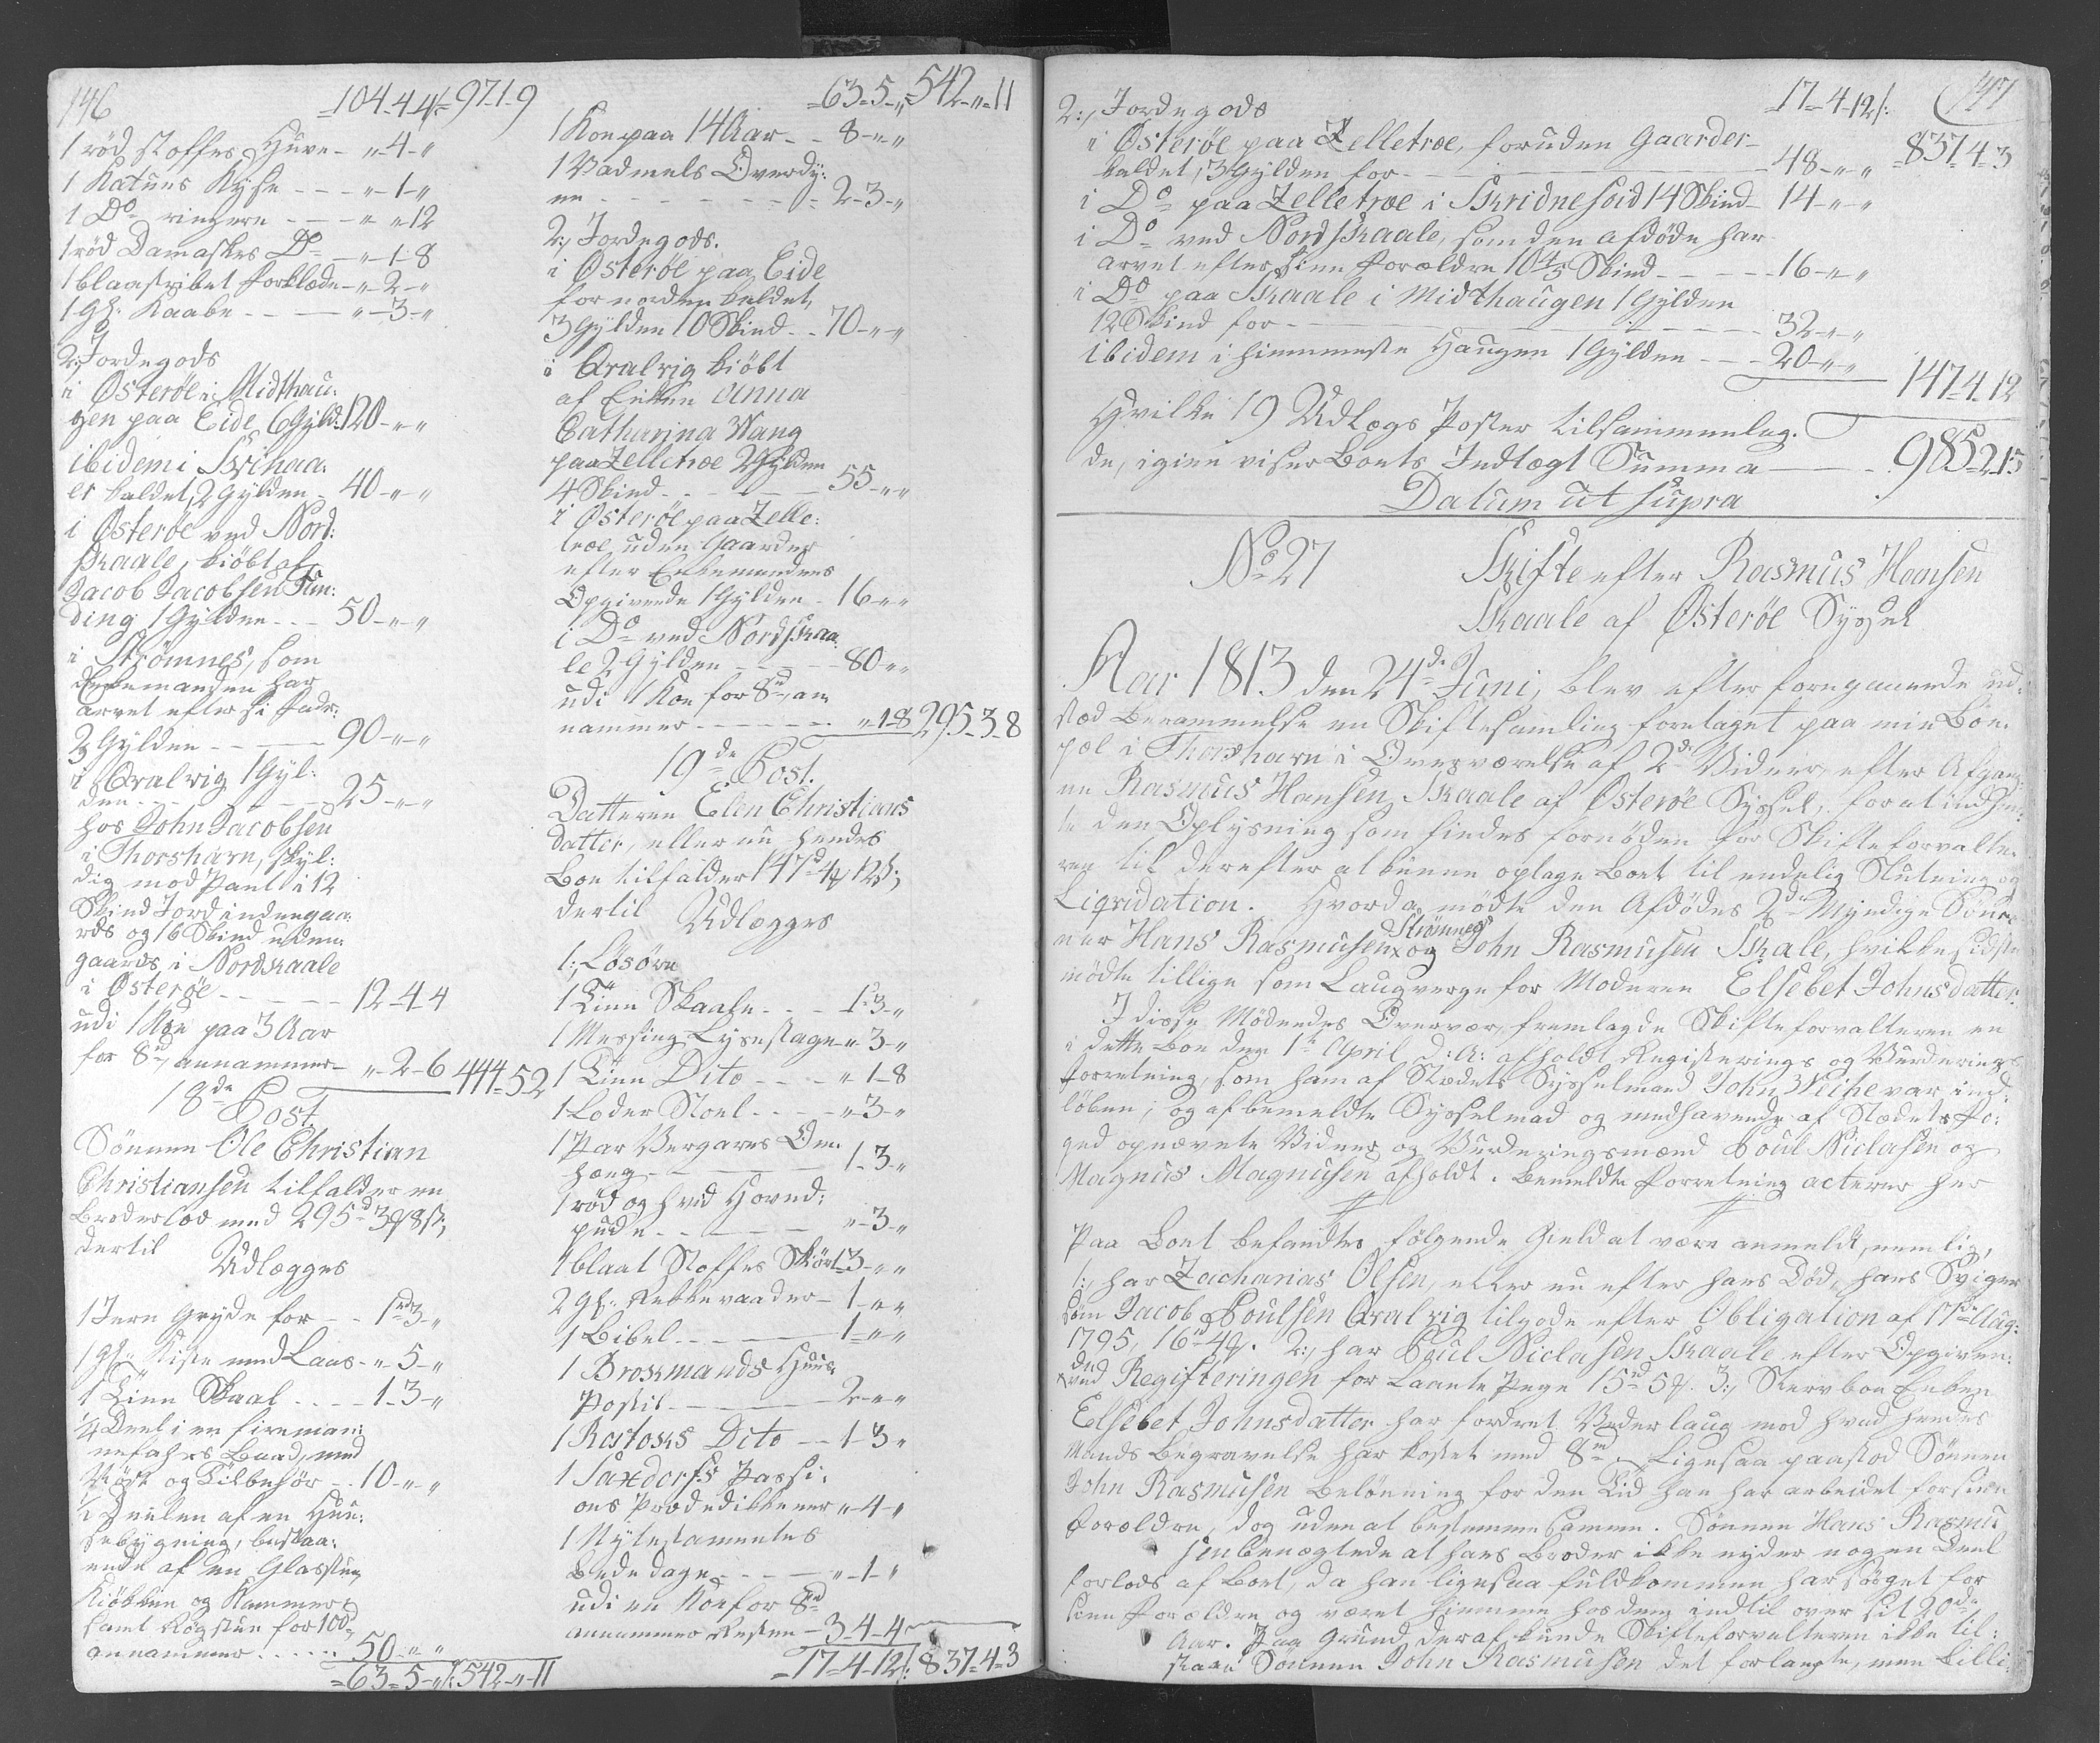 146
104-4-4 /: 97-1-9
1 rød stoffes Huve - „-4-„
1 Katuns Kyse - - - „-1-„
1 Do ringere - - - „-„-12
1 rød Damaskes Do - „-1-8
1 blaastribet Forklæde - „-2-„
1 gl. Kaabe - - - „-3-„
2:, Jordegods
i Østerøe i Midthau:
gen paa Eide 6 Gyld: 120-„-„
ibidem i
er kaldet, 2 Gylden - 40-„-„
i Østerøe ved Nord:
skaale, kiøbt af
Jacob Jacobsen Fun:
ding 1 Gylden - - - 50-„-„
i Strømnes, som
Enkemanden har
arvet efter si Fader
3 Gylden - - - 90-„-„
i Qvalvig 1 Gyl:
den - - - 25-„-„
hos John Jacobsen
i Thorshavn, skyl:
dig mod Pant i 12
Skind Jord indengaa:
rds og 16 Skind uden
gaards i Nordskaale
i Østerøe - - - 12-4-4
udi 1 Koe paa 3 Aar
for 8rd, annammer - „-2-6 444-5-2
18de Post.
Sønnen Ole Christian
Christiansen tilfalder en
Broderlod med 295rd 3 ℳ 8 ß;
dertil
Udlægges
1 Jern Gryde for - - 1rd 3-„
1 gl. Kiste med Laas - „-5-„
1 Tinn Skaal - - - 1-3-„
1/4 Deel i en firemam:
nefahrs Baad, med
Røst og Tilbehør - - 10-„-„
1/2 Deelen af en Huu:
sebygning, bestaa:
ende af en Glasstue,
Kiøkken og Kammer
samt Røgstue for 100rd,
annammer - - - 50-„-„
63-5-„ /: 542-„-11
63-5-„ 542-„-11
1 Koe paa 14 Aar - - 8-„-„
1 Vadmels Overdy:
ne - - - 2-3-„
2:, Jordegods.
i Østerøe paa Eide
for norden kaldet,
3 Gylden 10 Skind - - 70-„-„
i Qvalvig kiøbt
af Enken Anna
Catharina Wang
paa Zelletræe 2 Gylden
4 Skind - - - 55-„-„
i Østerøe paa Zelle:
træe uden Gaarder
efter Enkemandens
Opgivende 1 Gylden - 16-„-„
i Do ved Nordskaa:
le 2 Gylden - - - 80-„-„
udi 1 Koe for 8rd, an
nammer - - - „-1-8 295-3-8
19de Post.
Datteren Elen Christians
datter, eller nu hendes
Boe tilfalder 147rd 4 ℳ 12 ß;
dertil Udlægges
1:, Løsøre
1 Tinn Skaale - - - 1-3-„
1 Messing Lysestage „-3-„
1 Tinn Dito - - - „-1-8
1 Loder Stoel - - - „-3-„
1 Par Vergarns Om
hæng - - - 1-3-„
1 rød og hvid Hoved:
pude - - - „-3-„
1 blaat Stoffes Skiørt 3-„-„
2 gl. Rekkevaader - 1-„-„
1 Bibel - - - 1-„-„
1 Brochmands Huus
Postil - - - 2-„-„
1 Rostochs Dito - - 1-3-„
1 Saxdorfs Passi:
ons Prædedikkener „-4-„
1 Nytestamentes
Bededage - - - „-1-„
udi en Koe for 8rd
annammer Resten - 3-4-4
17-4-12 /: 837-4-3
147
2:, Jordegods
17-4-12 /:
i Østerøe paa Zelletræe, foruden Gaarder
kaldet, 3 Gylden for - - - 48-„-„ 837-4-3
i Do paa Zelletræe i Skridnefoid 14 Skind - 14-„-„
i Do ved Nordskaale, som den afdøde har
arvet efter sine Forældre 10 4/5 Skind - - - 16-„-„
i Do paa Skaale i Midthaugen 1 Gylden
12 Skind for - - - 32-„-„
ibidem i himmeste Haugen 1 Gylden - - - 20-„-„
147-4-12
Hvilke 19 Udlægs Poster tilsammenlag:
de, igien viser Boets Indtægt Summa - - - 985-2-15
Datum ut supra
No 27 Skifte efter Rasmus Hansen
Skaale af Østerøe Syssel
Aar 1813 den 24de Juni, blev efter foregaaende ud:
stæd Berammelse en Skiftesamling foretaget paa min Boe
pæl i Thorshavn i Overværelse af 2de Vidner, efter Afgang
ne Rasmus Hansen Skaale af Østerøe Syssel, for at indhen:
te den Oplysning som findes fornøden for Skifteforvalte:
ren til derefter at kunne optage Boet til endelig Slutning og
Liqvidation. Hvorda mødte den Afdødes 2de Myndige Søn
ner Hans Rasmusen Strømnes og John Rasmusen Skale, hvilke sidste
mødte tillige som Laugverge for Moderen Elsebet Johnsdatter.
I disse Mødendes Overvær, fremlagde Skifteforvalteren en
i dette Boe den 1te April d: A: afholdt Registerings og Vurderings
Forretning, som ham af Stædets Sysselmand John Weihe var ind:
løben; og af bemeldte Sysselmad og medhavende af Stædets Fo:
ged opnævnte Vidner og Vurderingsmænd Poul Niclasen og
Magnus Magnusen afholdt. Bemeldte Forretning acteres her
Paa Boet befandtes følgende Gield at være anmeldt, nemlig,
1:, har Zacharias Olsen, eller nu efter hans Død, hans Sviger
søn Jacob Poulsen Qvalvig tilgode efter Obligation af 17de Aug:
1795, 16rd 4 ℳ. 2:, har Poul Niclasen Skaale efter Opgiven:
de ved Registeringen for Laante Penge 15rd 5 ℳ. 3:, Stervboe Enken
Elsebet Johnsdatter har fordret Vederlaug mod hvad hendes
Mands Begravelse har kostet med 8rd. Ligesaa paastod Sønnen
John Rasmusen Belønning for den Tid han har arbeidet for sine
Forældre, dog uden at bestemme Samme. Sønnen Hans Rasmu
sen benægtede at hans Broder ikke nyder nogen Deel
forlods af Boet, da han ligesaa fuldkommen har søgt for
sine Forældre og været hiemme hos dem indtil over sit 20de
Aar. Paa Grund deraf kunde Skifteforvalteren ikke til:
staae Sønnen John Rasmusen det forlangte, men billi: